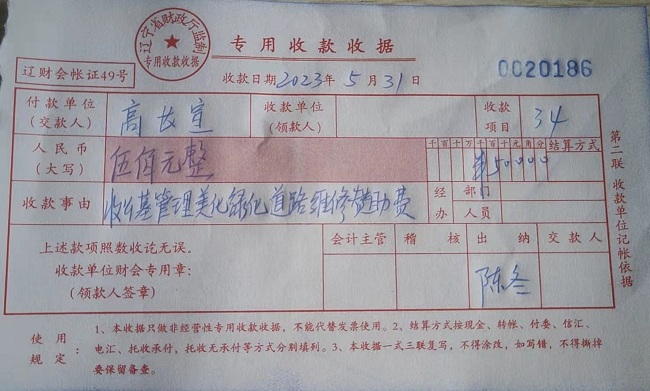 辽宁省财政厅监制
专用收款收据
专用收款收据
辽财会帐证49号
收款日期2023年5月31日
0020186
付款单位
(交款人)
高长宣
收款单位
(领款人)
收款
项目
34
人民币
(大写)
伍佰元整
千百十万千百十元角分
¥50000
结算方式
收款事由
收公墓管理美化绿化道路维修赞助费
经办
部门
人员
上述款项照数收讫无误。
收款单位财会专用章:
(领款人签章)
会计主管
稽核
出纳
交款人
陈冬
第二联 收款单位记帐依据
使用规定:
1、本收据只做非经营性专用收款收据,不能代替发票使用。2、结算方式按现金、转帐、付委、信汇、
电汇、托收承付,托收无承付等方式分别填列。3、本收据一式三联复写,不得涂改,如写错,不得撕掉
要保留备查。